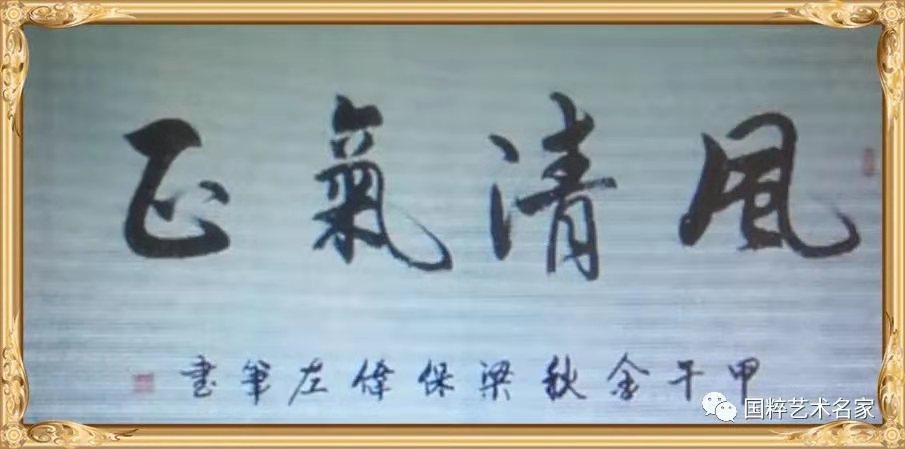 風清氣正
甲午金秋梁保偉左筆書
国粹艺术名家